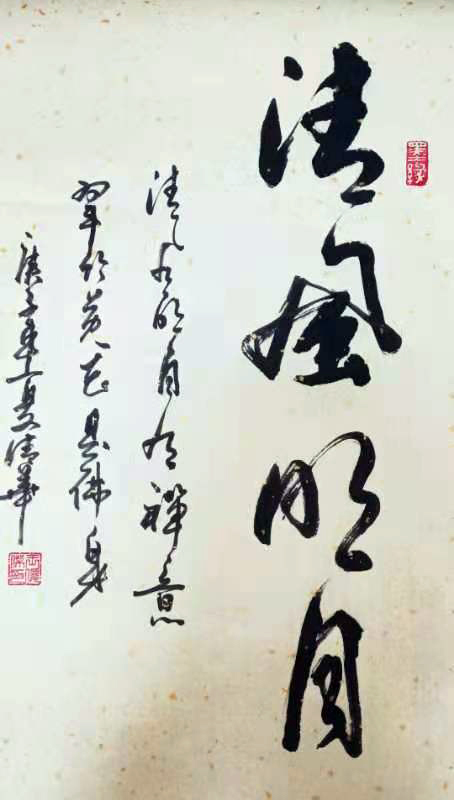 清風明月
清風明月有禪意
翠竹黄花具佛身
庚子年夏清華